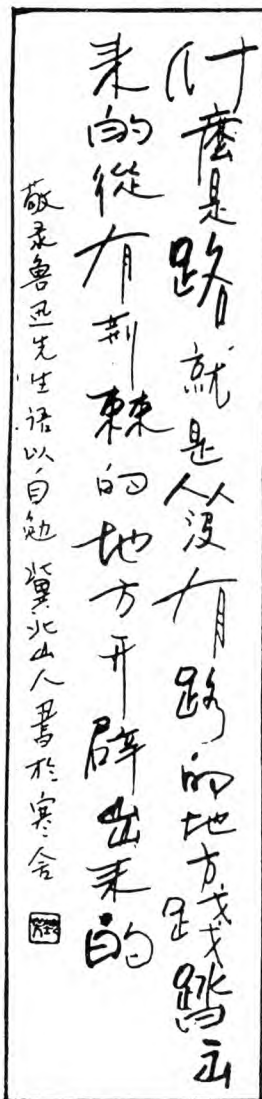 什麼是路就是从沒有路的地方踐踏出
来的從有荆棘的地方开辟出来的
敬录鲁迅先生语以自勉 冀北山人書於寒舍